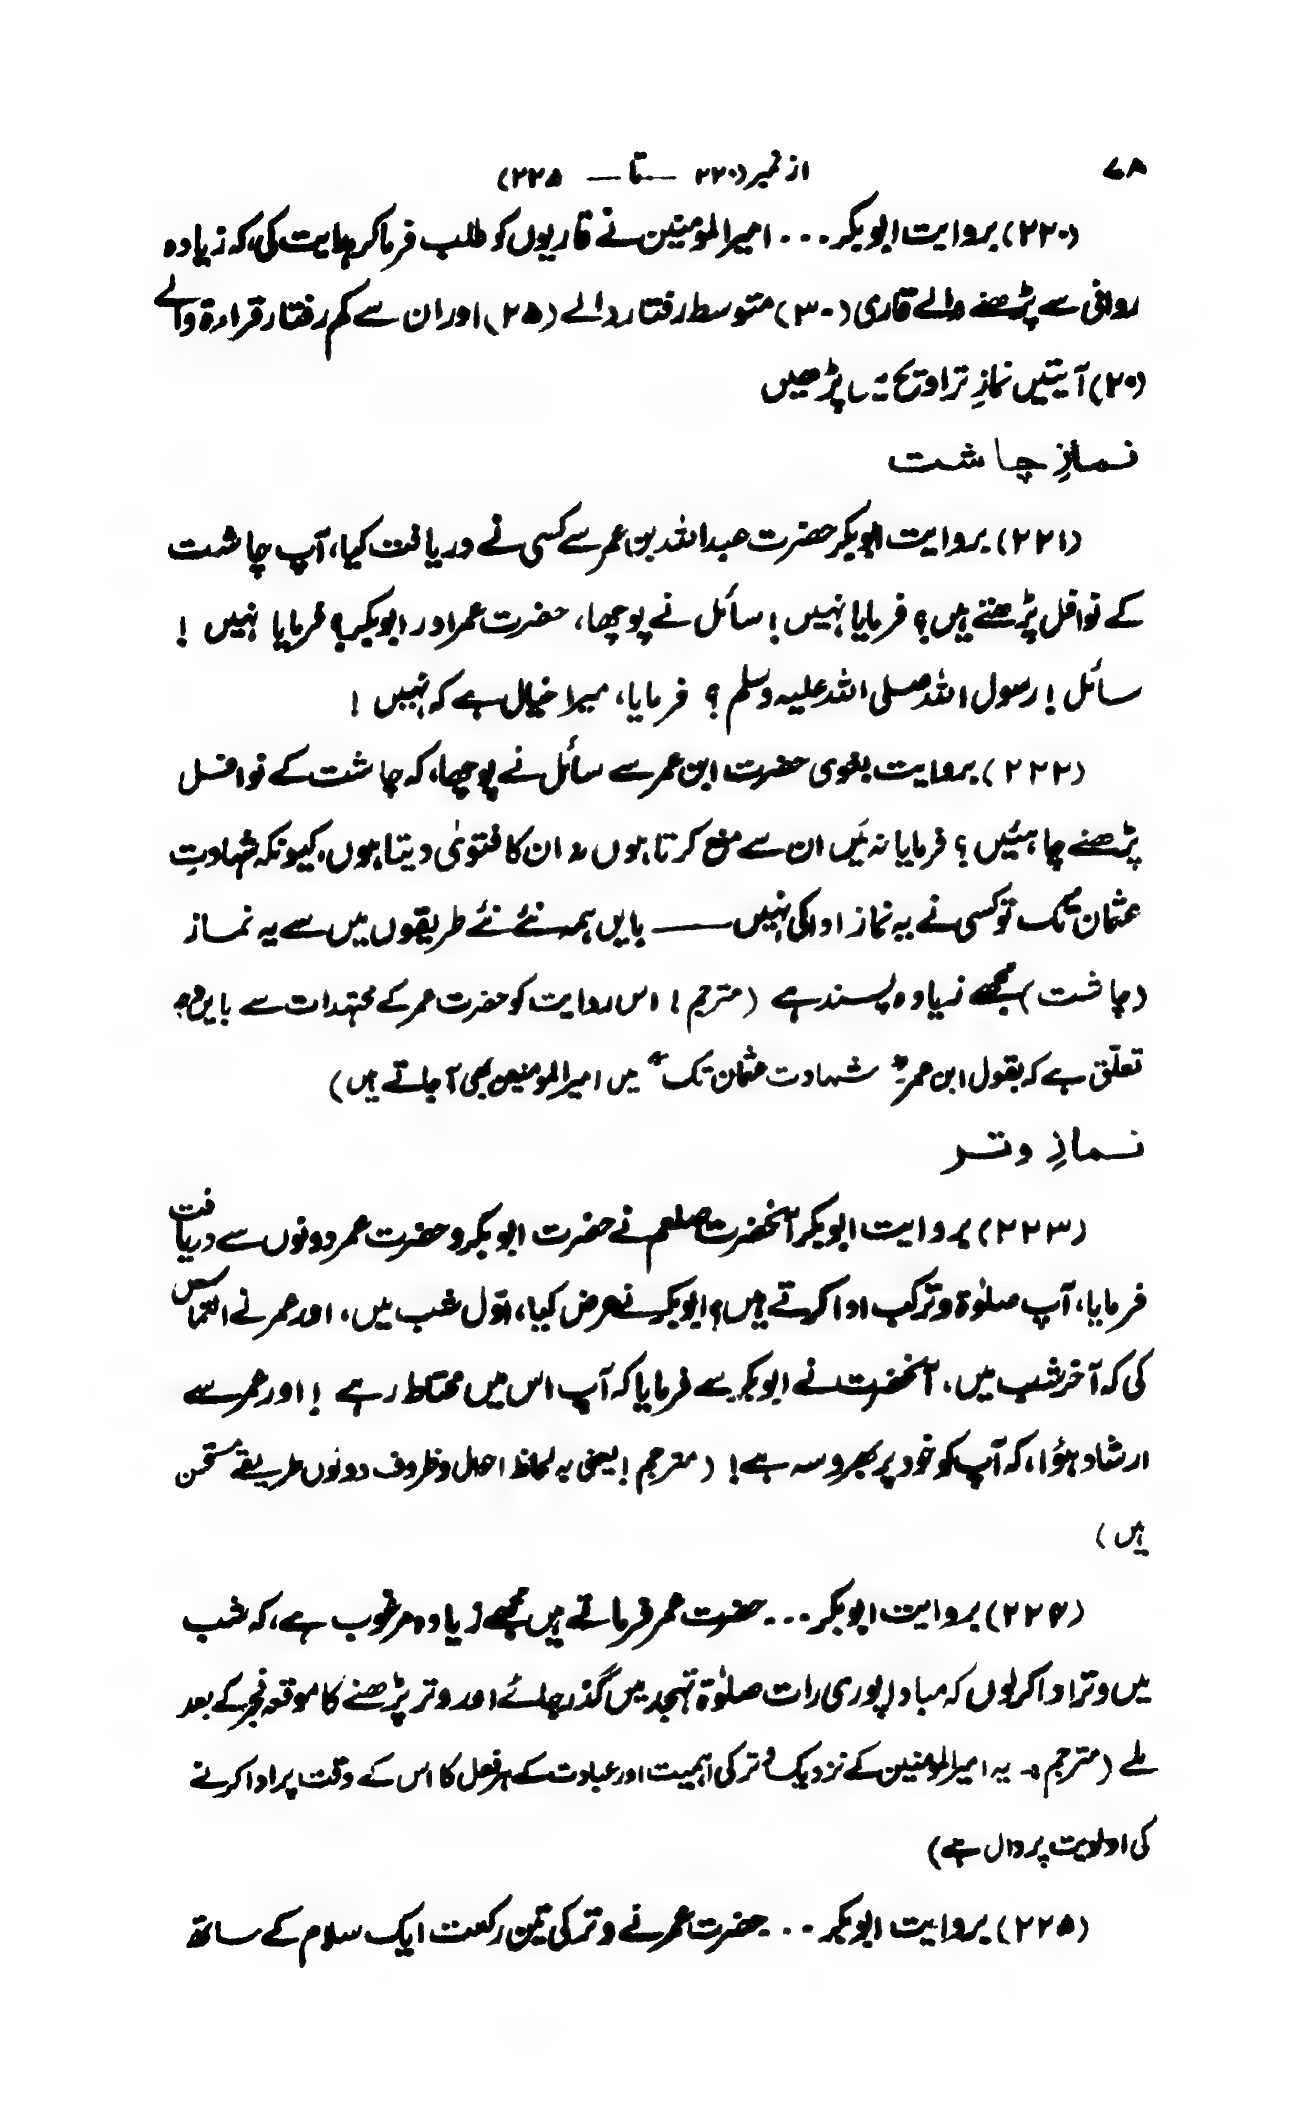 ۷۸ از نمبر (۲۲۰ — تا — ۲۲۵)
(۲۲۰) بروایت ابوبکر ... امیرالمومنین نے قاریوں کو طلب فرما کر ہدایت کی، کہ زیادہ
روانی سے پڑھنے والے قاری (۳۰) متوسط رفتار والے (۲۵) اور ان سے کم رفتار قراءۃ والے
(۲۰) آیتیں نمازِ تراویح میں پڑھیں
نمازِ چاشت
(۲۲۱) بروایت ابوبکر حضرت عبداللہ بن عمر سے کسی نے دریافت کیا، آپ چاشت
کے نوافل پڑھتے ہیں؟ فرمایا نہیں! سائل نے پوچھا، حضرت عمر اور ابوبکر؟ فرمایا نہیں!
سائل! رسول اللہ صلی اللہ علیہ وسلم؟ فرمایا، میرا خیال ہے کہ نہیں!
(۲۲۲) بروایت بغوی حضرت ابن عمر سے سائل نے پوچھا، کہ چاشت کے نوافل
پڑھنے چاہئیں؟ فرمایا نہ میں ان سے منع کرتا ہوں نہ ان کا فتویٰ دیتا ہوں، کیونکہ شہادتِ
عثمان تک تو کسی نے یہ نماز ادا کی نہیں —— بایں ہمہ نئے نئے طریقوں میں سے یہ نماز
(چاشت) مجھے زیادہ پسند ہے (مترجم! اس روایت کو حضرت عمر کے مجتہدات سے بایں وجہ
تعلّق ہے کہ بقول ابن عمر "شہادت عثمان تک" میں امیرالمومنین بھی آ جاتے ہیں)
نمازِ وتر
(۲۲۳) بروایت ابوبکر آنحضرت صلعم نے حضرت ابوبکر و حضرت عمر دونوں سے دریافت
فرمایا، آپ صلوٰۃ وتر کب ادا کرتے ہیں؟ ابوبکر نے عرض کیا، اوّل شب میں، اور عمر نے التماس
کی کہ آخر شب میں، آنحضرت نے ابوبکر سے فرمایا کہ آپ اس میں محتاط رہے! اور عمر سے
ارشاد ہؤا، کہ آپ کو خود پر بھروسہ ہے! (مترجم! یعنی بہ لحاظ احوال و ظروف دونوں طریقے مستحسن
ہیں)
(۲۲۴) بروایت ابوبکر ... حضرت عمر فرماتے ہیں مجھے زیادہ مرغوب ہے، کہ شب
میں وتر ادا کر لوں کہ مبادا پوری رات صلوٰۃ تہجد میں گذر جائے اور وتر پڑھنے کا موقعہ فجر کے بعد
ملے (مترجم :- یہ امیرالمومنین کے نزدیک وتر کی اہمیت اور عبادت کے ہر فعل کا اس کے وقت پر ادا کرنے
کی اولویت پر دال ہے)
(۲۲۵) بروایت ابوبکر ... حضرت عمر نے وتر کی تین رکعت ایک سلام کے ساتھ